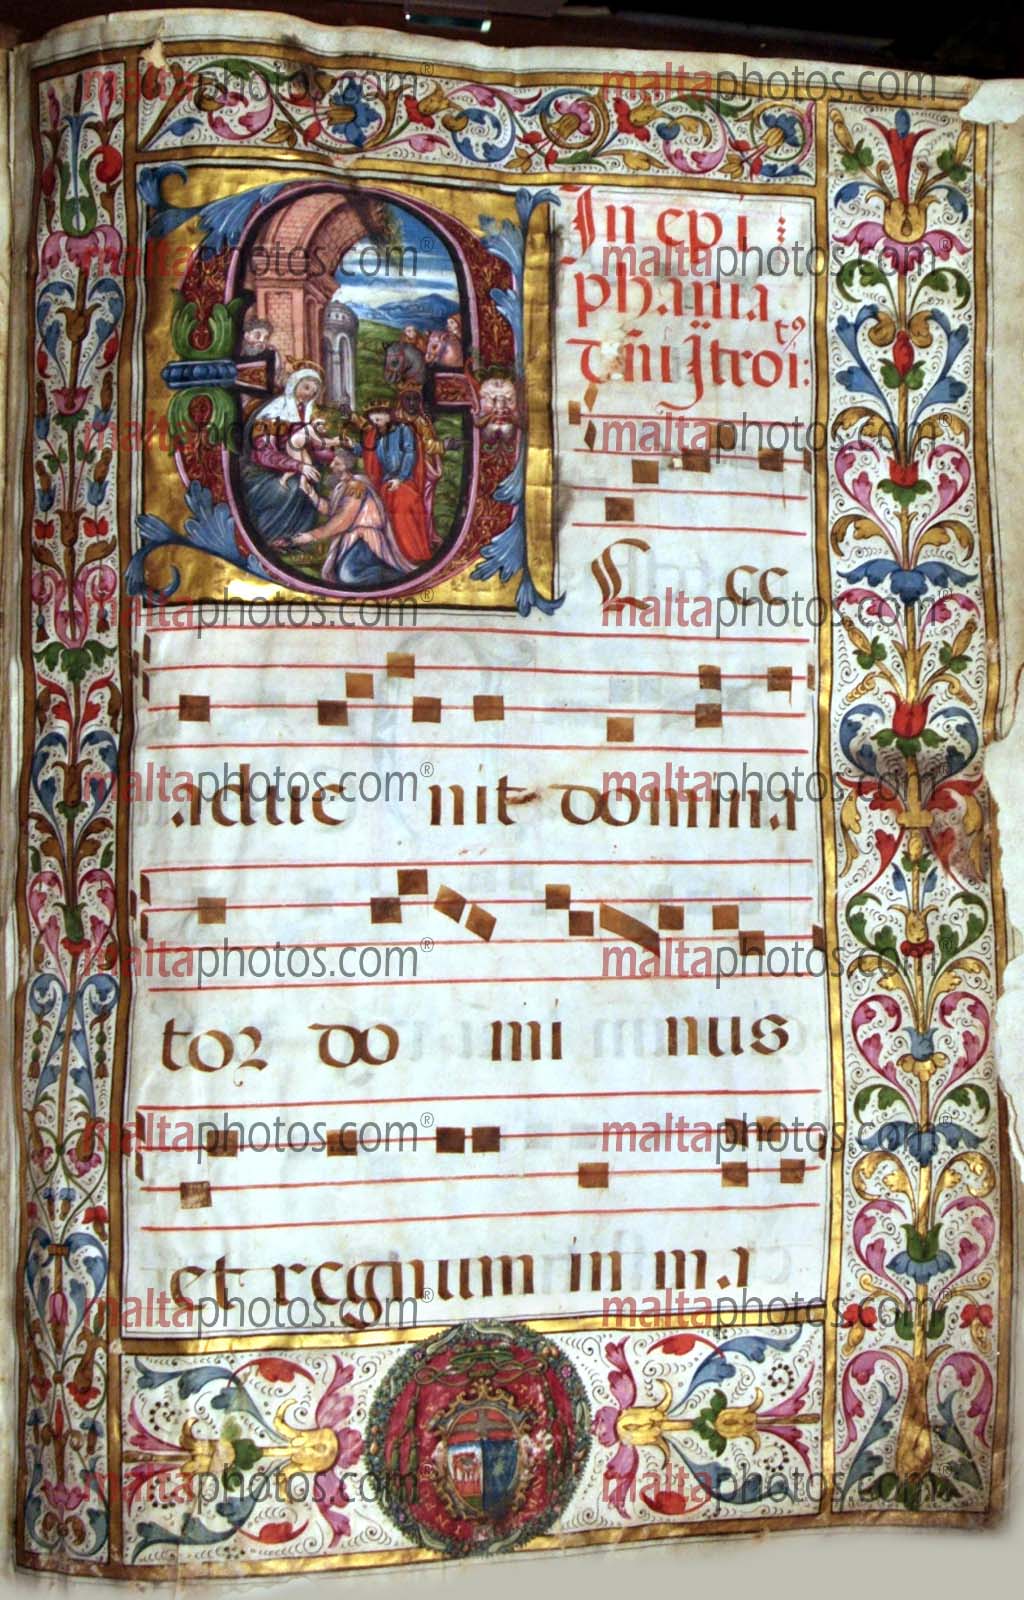 In epi
phania
dñi Jtroitꝰ:
E cc
aduenit domina
tor dominus
et regnum in ma
maltaphotos.com®